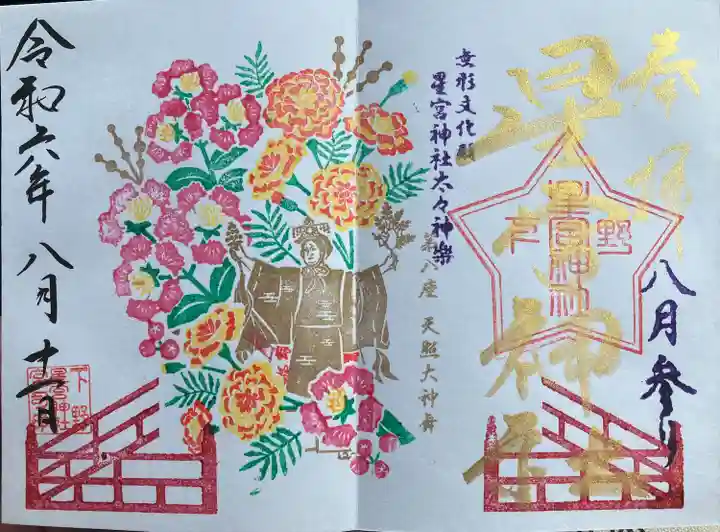 奉拝
星宮神社
下野
星宮神社
八月参り
無形文化財
星宮神社太々神樂
第八座 天照大神舞
令和六年八月十一日
下野
星宮神社